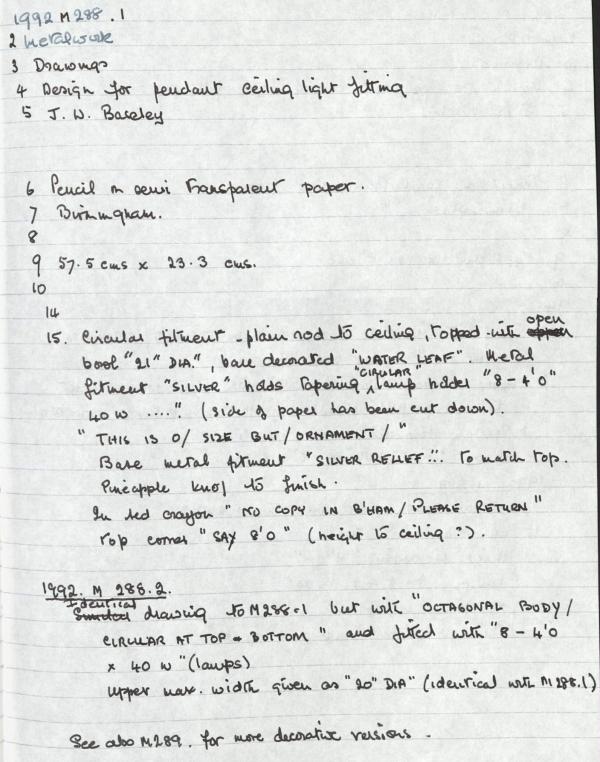 1992 M 288 .1
2 Metalwork
3 Drawings
4 Design for pendant ceiling light fitting
5 J. W. Baseley
6 Pencil on semi transparent paper.
7 Birmingham.
8
9 57.5 cms x 23.3 cms.
10
14
15. Circular fitment - plain rod to ceiling, topped with open
bowl "21" DIA.", base decorated "WATER LEAF". Metal
fitment "SILVER" holds tapering "CIRCULAR" lamp holder "8 - 4'0"
40 W ....". (side of paper has been cut down).
" THIS IS O/ SIZE BUT/ ORNAMENT / "
Base metal fitment "SILVER RELIEF..". to match top.
Pineapple knop to finish.
In red crayon " NO COPY IN B'HAM / PLEASE RETURN "
top corner "SAY 8'0 " (height to ceiling ?).
1992. M 288.2.
Identical drawing to M288.1 but with "OCTAGONAL BODY /
CIRCULAR AT TOP & BOTTOM " and fitted with "8 - 4'0
x 40 W "(lamps)
Upper max. width given as "20" DIA" (identical with M288.1)
See also M289. for more decorative versions.